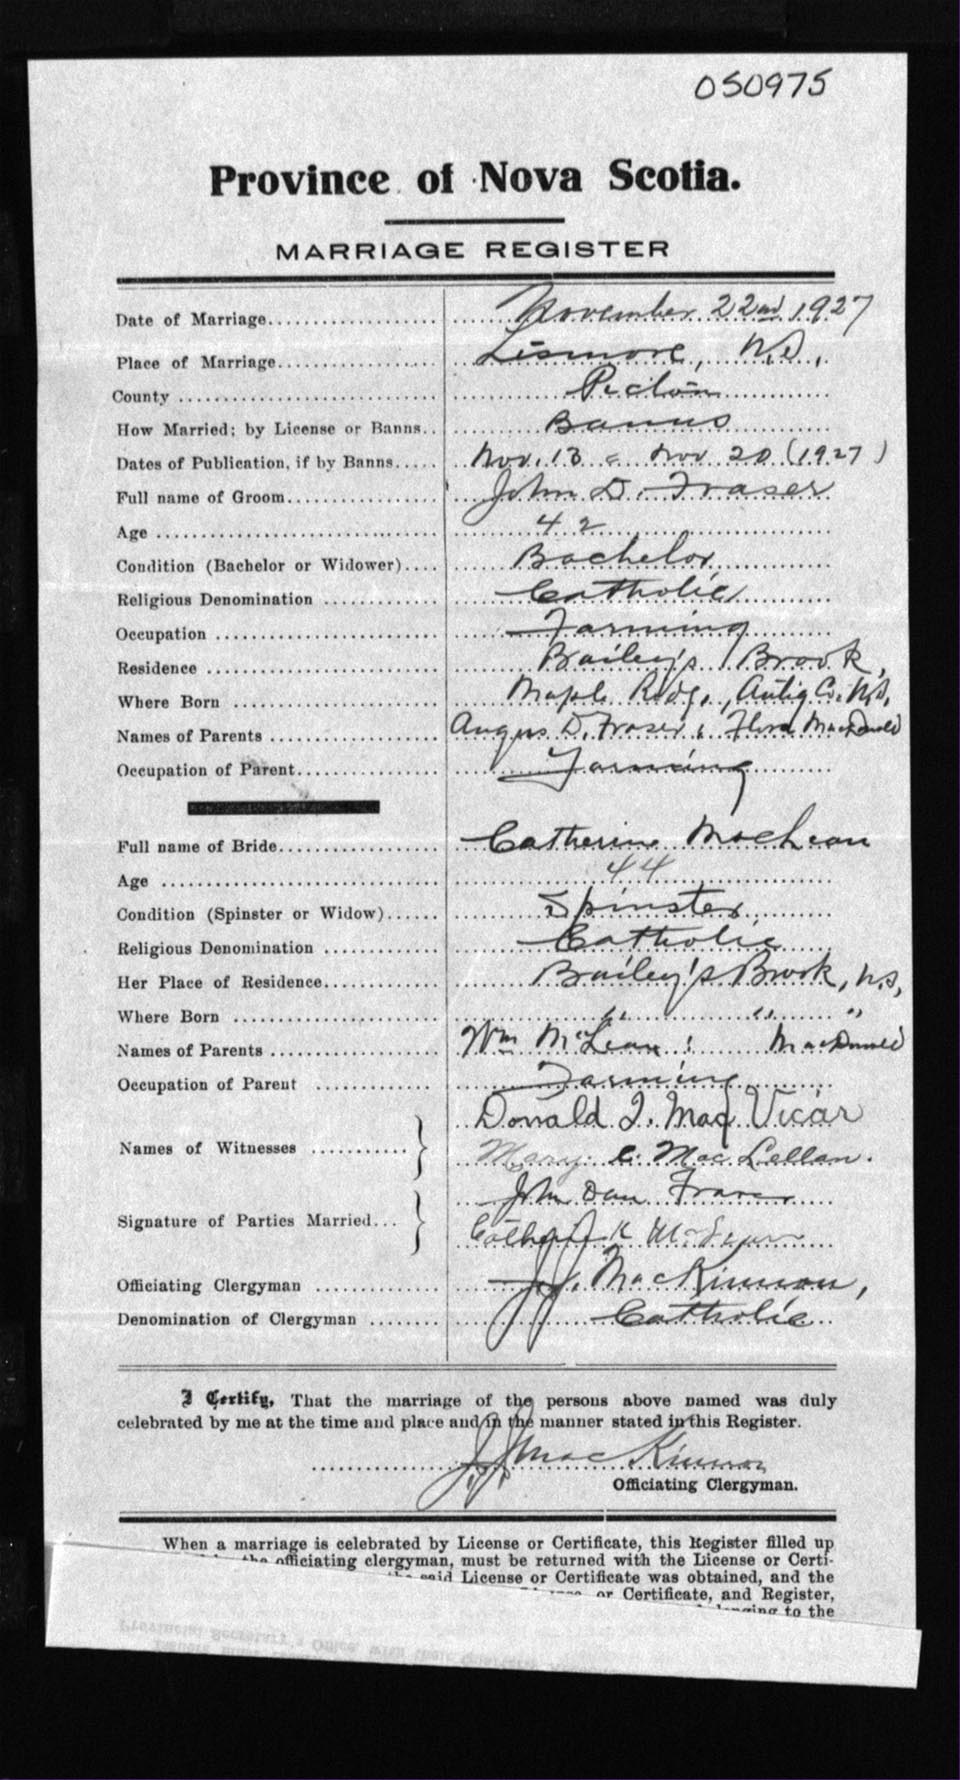 050975
Province of Nova Scotia.
MARRIAGE REGISTER
Date of Marriage.................... November 22nd, 1927
Place of Marriage.................. Lismore, N.S.,
County ............................. Pictou
How Married; by License or Banns.. Banns
Dates of Publication, if by Banns..... Nov. 13 & Nov 20 (1927)
Full name of Groom.................. John D. Fraser
Age ................................ 42
Condition (Bachelor or Widower).... Bachelor
Religious Denomination ............. Catholic
Occupation ......................... Farming
Residence .......................... Bailey's Brook,
Where Born ......................... Maple Ridg., Antig Co. N.S,
Names of Parents ................... Angus D. Fraser : Flora MacDonald
Occupation of Parent................ Farming
Full name of Bride.................. Catherine MacLean
Age ................................ 44
Condition (Spinster or Widow)...... Spinster
Religious Denomination ............. Catholic
Her Place of Residence.............. Bailey's Brook, N.S,
Where Born ......................... " " "
Names of Parents ................... Wm McLean : MacDonald
Occupation of Parent ............... Farming
Donald J. MacVicar
Names of Witnesses ...........} Mary C. MacLellan.
John Dan Fraser
Signature of Parties Married...}
Officiating Clergyman .............. J.J. MacKinnon,
Denomination of Clergyman ........ Catholic
I Certify, That the marriage of the persons above named was duly
celebrated by me at the time and place and in the manner stated in this Register.
J.J. MacKinnon
Officiating Clergyman.
When a marriage is celebrated by License or Certificate, this Register filled up
the officiating clergyman, must be returned with the License or Certi-
the said License or Certificate was obtained, and the
or Certificate, and Register,
to the